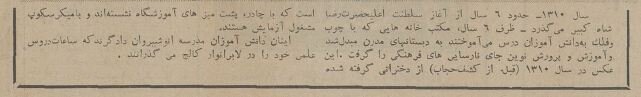 سال ۱۳۱۰ـ حدود ۶ سال از آغاز سلطنت اعلیحضرت رضا
شاه کبیر میگذرد ـ ظرف ۶ سال، مکتب خانه هایی که با چوب
وفلك بهدانش آموزان درس میآموختند به دبستانهای مدرن مبدلشد
وآموزش و پرورش نوین جای نارسایی های فرهنگی را گرفت .این
عکس در سال ۱۳۱۰ (قبل از کشفحجاب) از دخترانی گرفته شده
است که با چادر، پشت میز های آموزشگاه نشستهاند و بامیکرسکوپ
مشغول آزمایش هستند.
اینان دانش آموزان مدرسه انوشیروان دادگرندکه ساعاتدروس
علمی خود را در لابراتوار کالج می گذرانند .